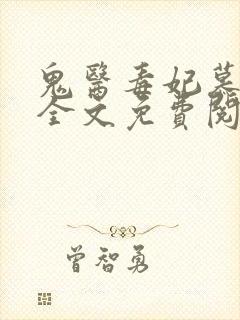 鬼醫毒妃慕
全文免費閱
曾智勇